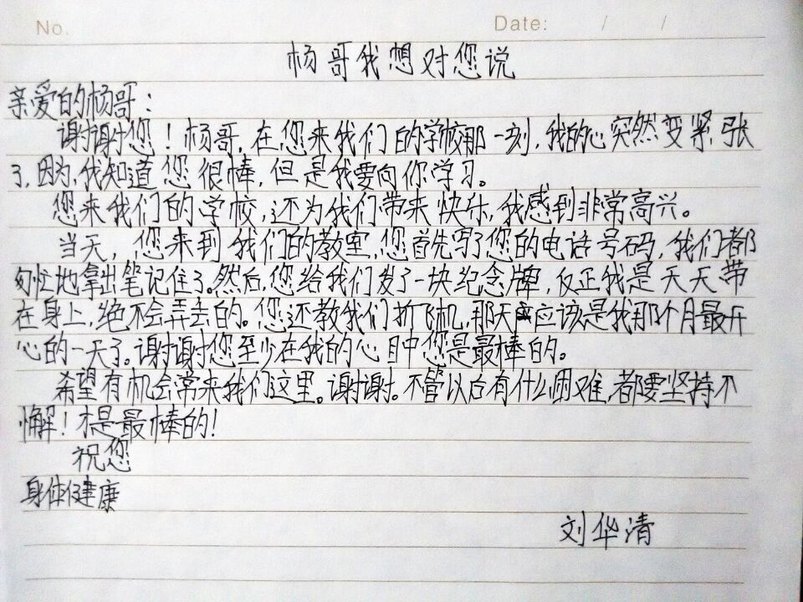 No.
Date: / /
杨哥我想对您说
亲爱的杨哥：
谢谢您！杨哥，在您来我们的学校那一刻，我的心突然变紧张
了，因为，我知道您很棒，但是我要向你学习。
您来我们的学校，还为我们带来快乐，我感到非常高兴。
当天，您来到我们的教室，您首先写了您的电话号码，我们都
匆忙地拿出笔记住了。然后，您给我们发了一块纪念牌，反正我是天天带
在身上，绝不会弄丢的。您还教我们折飞机，那天应该是我那个月最开
心的一天了。谢谢您至少在我的心目中您是最棒的。
希望有机会常来我们这里。谢谢。不管以后有什么困难，都要坚持不
懈！才是最棒的！
祝您
身体健康
刘华清